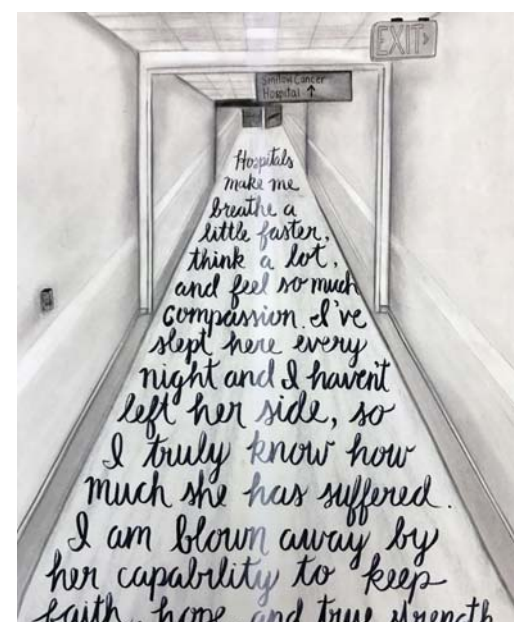 EXIT
Smilow Cancer
Hospital ↑
Hospitals
make me
breathe a
little faster,
think a lot,
and feel so much
compassion. I've
slept here every
night and I haven't
left her side, so
I truly know how
much she has suffered.
I am blown away by
her capability to keep
faith, hope, and true strength